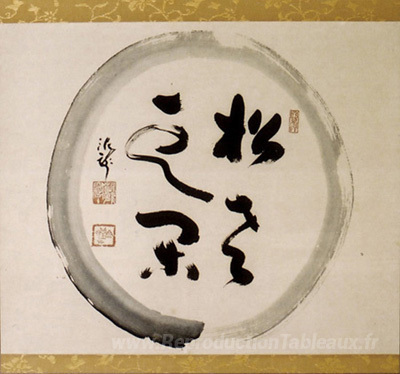 松老
雲閑
www.ReproductionTableaux.fr